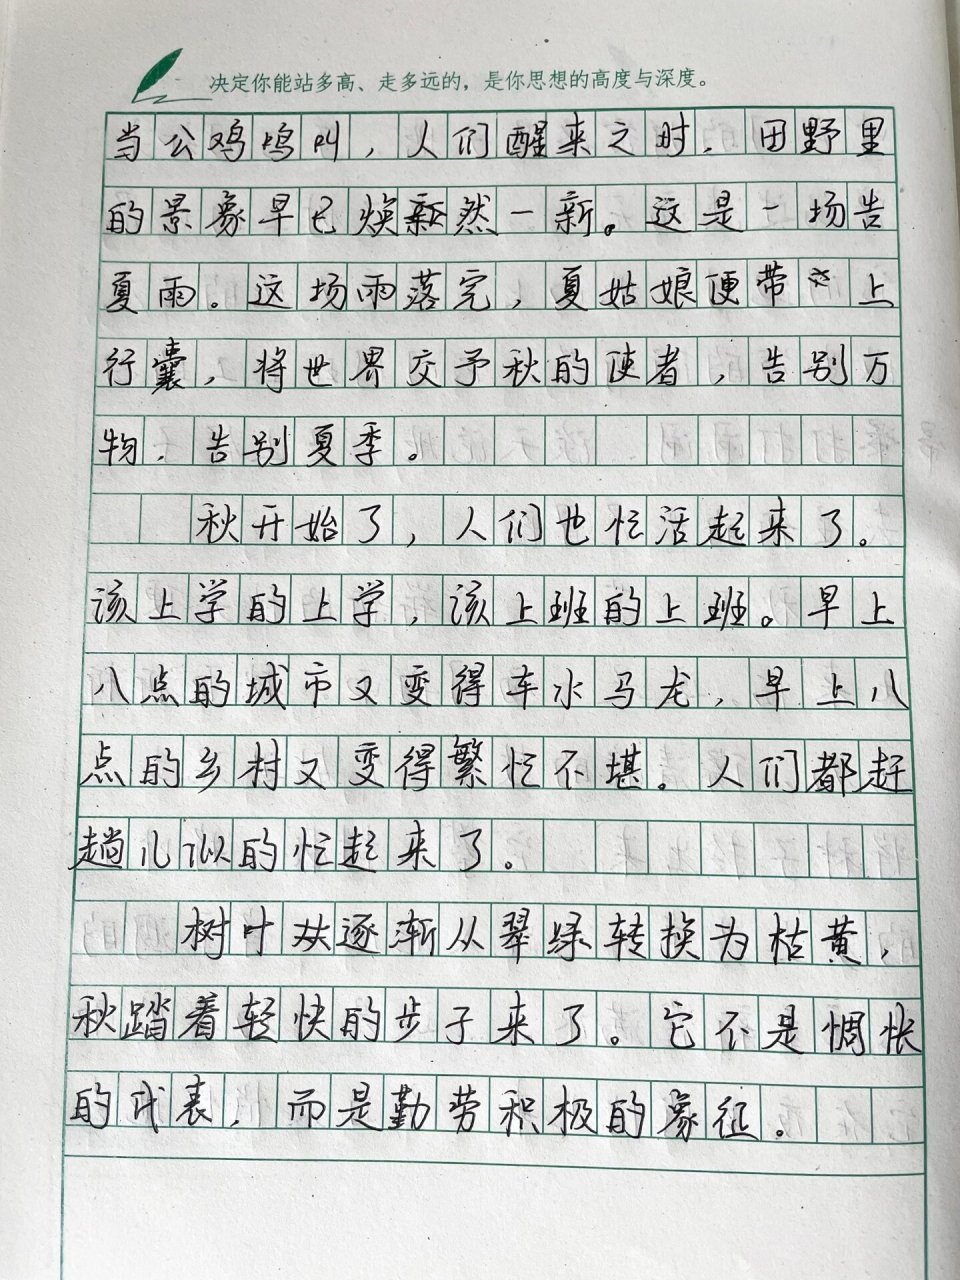 决定你能站多高、走多远的，是你思想的高度与深度。
当公鸡鸣叫，人们醒来之时，田野里
的景象早已焕然一新。这是一场告
夏雨。这场雨落完，夏姑娘便带上
行囊，将世界交予秋的使者，告别万
物，告别夏季。
秋开始了，人们也忙活起来了。
该上学的上学，该上班的上班。早上
八点的城市又变得车水马龙，早上八
点的乡村又变得繁忙不堪。人们都赶
趟儿似的忙起来了。
树叶逐渐从翠绿转换为枯黄，
秋踏着轻快的步子来了。它不是惆怅
的代表，而是勤劳积极的象征。